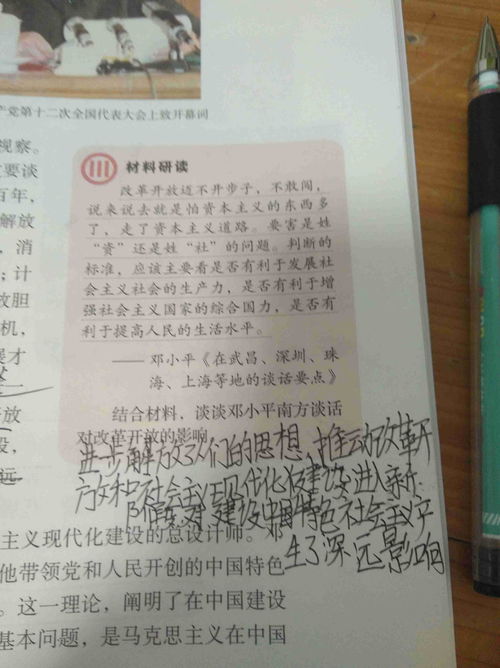 产党第十二次全国代表大会上致开幕词
视察。
要谈
百年，
解放
，消
；计
放胆
机，
展才
放
设，
远
材料研读
改革开放迈不开步子，不敢闯，
说来说去就是怕资本主义的东西多
了，走了资本主义道路。要害是姓
“资”还是姓“社”的问题。判断的
标准，应该主要看是否有利于发展社
会主义社会的生产力，是否有利于增
强社会主义国家的综合国力，是否有
利于提高人民的生活水平。
——邓小平《在武昌、深圳、珠
海、上海等地的谈话要点》
结合材料，谈谈邓小平南方谈话
对改革开放的影响
进步解放了人们的思想、推动改革开
放和社会主义现代化建设进入新
阶段，对建设中国特色社会主义产
生了深远影响
主义现代化建设的总设计师。邓
他带领党和人民开创的中国特色
。这一理论，阐明了在中国建设
基本问题，是马克思主义在中国